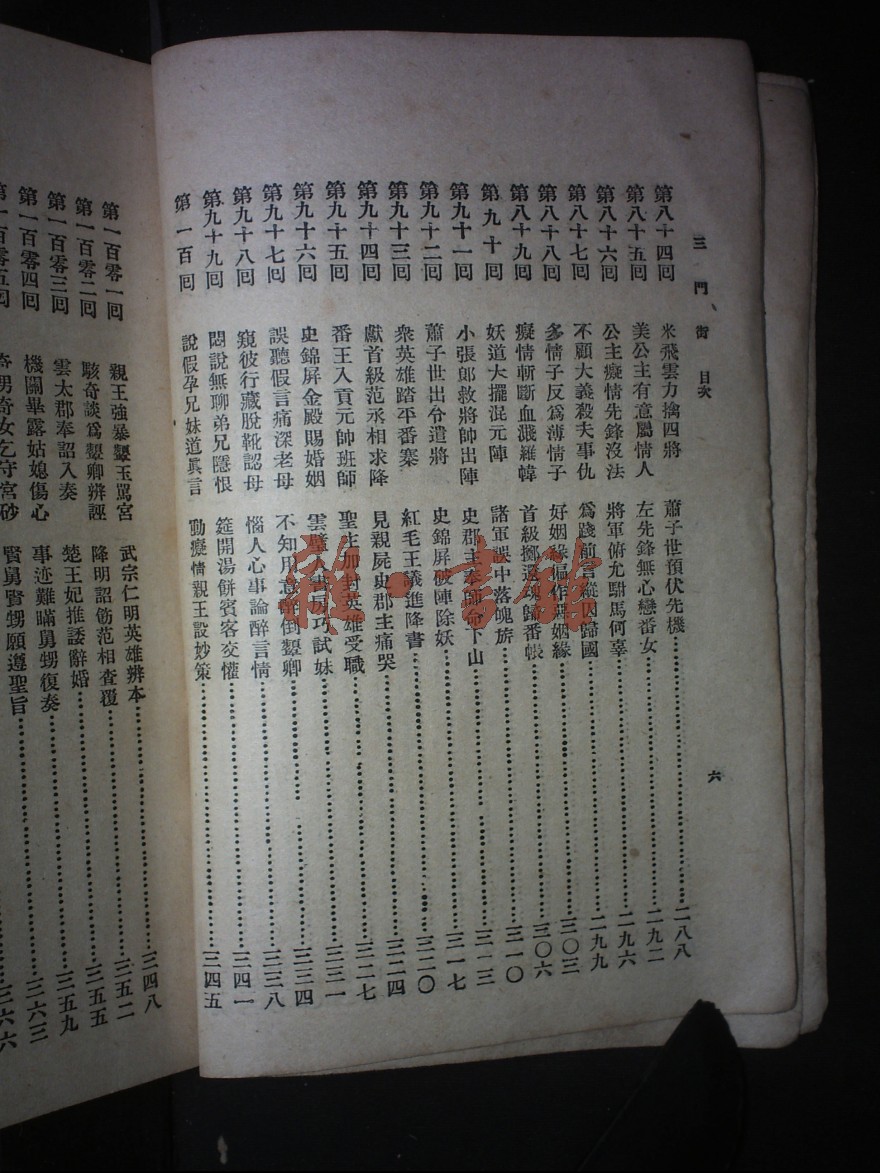 三門街 目次
六
第八十四回 米飛雲力擒四將 蕭子世預伏先機 二八八
第八十五回 美公主有意屬情人 左先鋒無心戀番女 二九二
第八十六回 公主癡情先鋒沒法 將軍俯允駙馬何辜 二九六
第八十七回 不顧大義殺夫事仇 爲踐前言縱囚歸國 二九九
第八十八回 多情子反爲薄情子 好姻緣偏作惡姻緣 三〇三
第八十九回 癡情斬斷血濺羅幃 首級擲還魂歸番帳 三〇六
第九十回 妖道大擺混元陣 諸軍誤中落魄旂 三一〇
第九十一回 小張郎救將帥出陣 史郡主奉師命下山 三一三
第九十二回 蕭子世出令遣將 史錦屏破陣除妖 三一七
第九十三回 衆英雄踏平番寨 紅毛王議進降書 三二〇
第九十四回 獻首級范丞相求降 見親屍史郡主痛哭 三二四
第九十五回 番王入貢元帥班師 聖主加封英雄受職 三二七
第九十六回 史錦屏金殿賜婚姻 雲璧人書房巧試妹 三三一
第九十七回 誤聽假言痛深老母 不知用意醉倒顰卿 三三四
第九十八回 窺彼行藏脫靴認母 惱人心事論醉言情 三三八
第九十九回 悶說無聊弟兄隱恨 筵開湯餅賓客交懽 三四一
第一百回 說假孕兄妹道眞言 動癡情親王設妙策 三四五
第一百零一回 親王強暴顰玉罵宮 武宗仁明英雄辨本 三四八
第一百零二回 駭奇談爲顰卿辨誣 降明詔筋范相查覆 三五二
第一百零三回 雲太郡奉詔入奏 楚王妃推諉辭婚 三五五
第一百零四回 機關畢露姑媳傷心 事迹難瞞舅甥復奏 三五九
第一百零五回 奇男奇女乞守宮砂 賢舅賢甥願遵聖旨 三六三
三六六
雅一書館